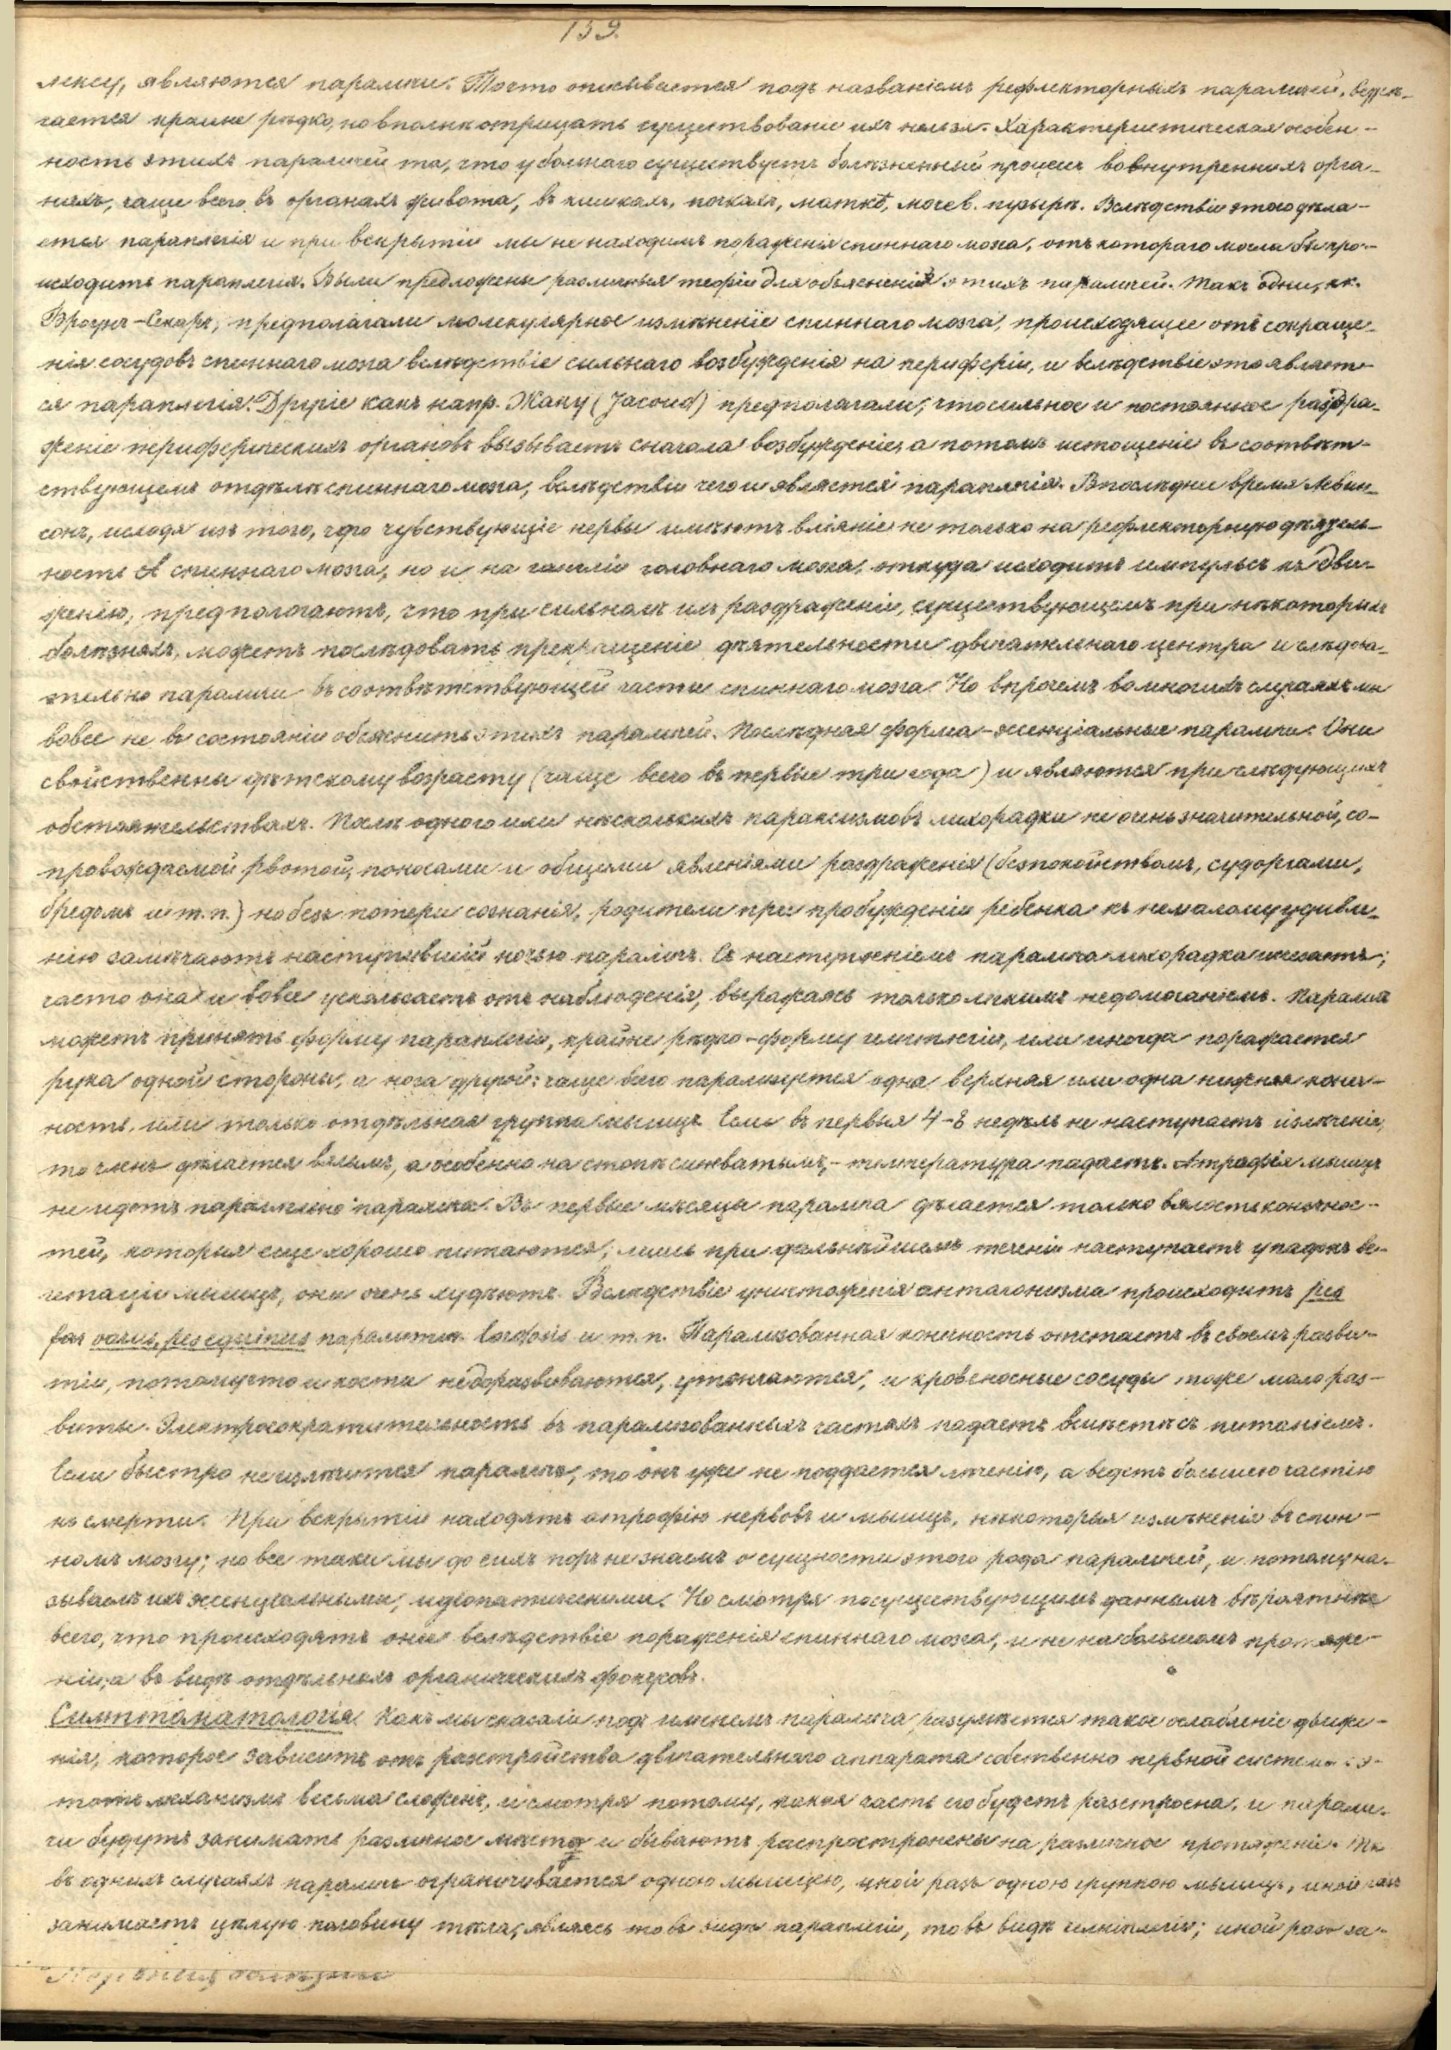 139.
лексу, являются параличи. То что описывается подъ названіемъ рефлекторныхъ параличей, встрѣ-
чается крайне рѣдко, но вполнѣ отрицать существованіе ихъ нельзя. Характеристическая особен-
ность этихъ параличей та, что у больнаго существуетъ болѣзненный процесъ во внутреннихъ орга-
нахъ, чаще всего въ органахъ живота, въ кишкахъ, почкахъ, маткѣ, мочев. пузырѣ. Вслѣдствіи этого дѣла-
ется параплегія и при вскрытіи мы не находимъ пораженія спиннаго мозга, отъ котораго могла бы про-
исходить параплегія. Были предложены различныя теоріи для объясненія этихъ параличей. Такъ одни, кк.
Броунъ-Секаръ, предполагали молекулярное измѣненіе спиннаго мозга, происходящее отъ сокраще-
нія сосудовъ спиннаго мозга вслѣдствіе сильнаго возбужденія на периферіи, и вслѣдствіе это являет-
ся параплегія. Другіе какъ напр. Жаку (Jacoud) предполагали, что сильное и постоянное раздра-
женіе периферическихъ органовъ вызываетъ сначала возбужденіе, а потомъ истощеніе въ соотвѣт-
ствующемъ отдѣлѣ спиннаго мозга, вслѣдствіи чего и является параплегія. Въ послѣднее время Левин-
сонъ, исходя изъ того, что чувствующіе нервы имѣютъ вліяніе не только на рефлекторную дѣятель-
ность спиннаго мозга, но и на гангліи головнаго мозга, откуда исходитъ импульсъ къ дви-
женію, предполагаютъ, что при сильномъ ихъ раздраженіи, существующемъ при нѣкоторыхъ
болѣзняхъ, можетъ послѣдовать прекращеніе дѣятельности двигательнаго центра и слѣдова-
тельно параличи въ соотвѣтствующей части спиннаго мозга. Но впрочемъ во многихъ случаяхъ мы
вовсе не въ состояніи объяснить этихъ параличей. Послѣдняя форма - эсенціальные параличи. Они
свойственны дѣтскому возрасту (чаще всего въ первые три года) и являются при слѣдующихъ
обстоятельствахъ. Послѣ одного или нѣсколькихъ пароксизмовъ лихорадки не очень значительной, со-
провождаемой рвотой, поносами и общими явленіями раздраженія (безпокойствомъ, судоргами,
бредомъ и т. п.) но безъ потери сознанія, родители при пробужденіи ребенка къ немалому удивле-
нію замѣчаютъ наступившій ночью параличъ. Съ наступленіемъ паралича лихорадка исчезаетъ;
часто она и вовсе ускользаетъ отъ наблюденія, выражаясь только легкимъ недомоганіемъ. Паралич
можетъ принять форму параплегіи, крайне рѣдко - форму гемиплегіи, или иногда поражается
рука одной стороны, а нога другой: чаще всего парализуется одна верхняя или одна нижняя конеч-
ность, или только отдѣльная группа мышцъ. Если въ первыя 4-8 недѣль не наступаетъ излѣченіе,
то членъ дѣлается вялымъ, а особенно на стопѣ синеватымъ, - температура падаетъ. Атрофія мышцъ
не идетъ паралельно паралича. Въ первые мѣсяцы паралича дѣлается только вялость конечнос-
тей, которыя еще хорошо питаются, лишь при дальнѣйшемъ теченіи наступаетъ упадокъ ве-
гетаціи мышцъ, они очень худѣютъ. Вслѣдствіе уничтоженія антагонизма происходитъ pes
varus, pes equinus паралитич. lordosis и т. п. Парализованная конечность отстаетъ въ своемъ разви-
тіи, потому что и кости недоразвиваются, утончаются, и кровеносные сосуды тоже мало раз-
виты. Электросократительность въ парализованныхъ частяхъ падаетъ вмѣстѣ съ питаніемъ.
Если быстро не излѣчится параличъ, то онъ уже не поддается лѣченію, а ведетъ большею частію
къ смерти. При вскрытіи находятъ атрофію нервовъ и мышцъ, нѣкоторыя измѣненія въ спин-
номъ мозгу; но все таки мы до сихъ поръ не знаемъ о сущности этого рода параличей, и потому на-
зываемъ ихъ эсенціальными, идіопатическими. Но смотря по существующимъ даннымъ вѣроятнѣе
всего, что происходятъ они вслѣдствіе пораженія спиннаго мозга, и не на большомъ протяже-
ніи, а въ видѣ отдѣльныхъ органическихъ фокусовъ.
Симптоматологія. Какъ мы сказали подъ именемъ паралича разумѣется такое ослабленіе движе-
нія, которое зависитъ отъ разстройства двигательнаго аппарата собственно нервной системы. Э-
тотъ механизмъ весьма сложенъ, и смотря потому, какая часть его будетъ разстроена, и парали-
чи будутъ занимать различное мѣсто и бываютъ распространены на различное протяженіе. Такъ
въ однихъ случаяхъ параличъ ограничивается одною мышцею, иной разъ одною группою мышцъ, иной разъ
занимаетъ цѣлую половину тѣла, являясь то въ видѣ параплегіи, то въ видѣ гемиплегіи; иной разъ за-
Нервныя болѣзни